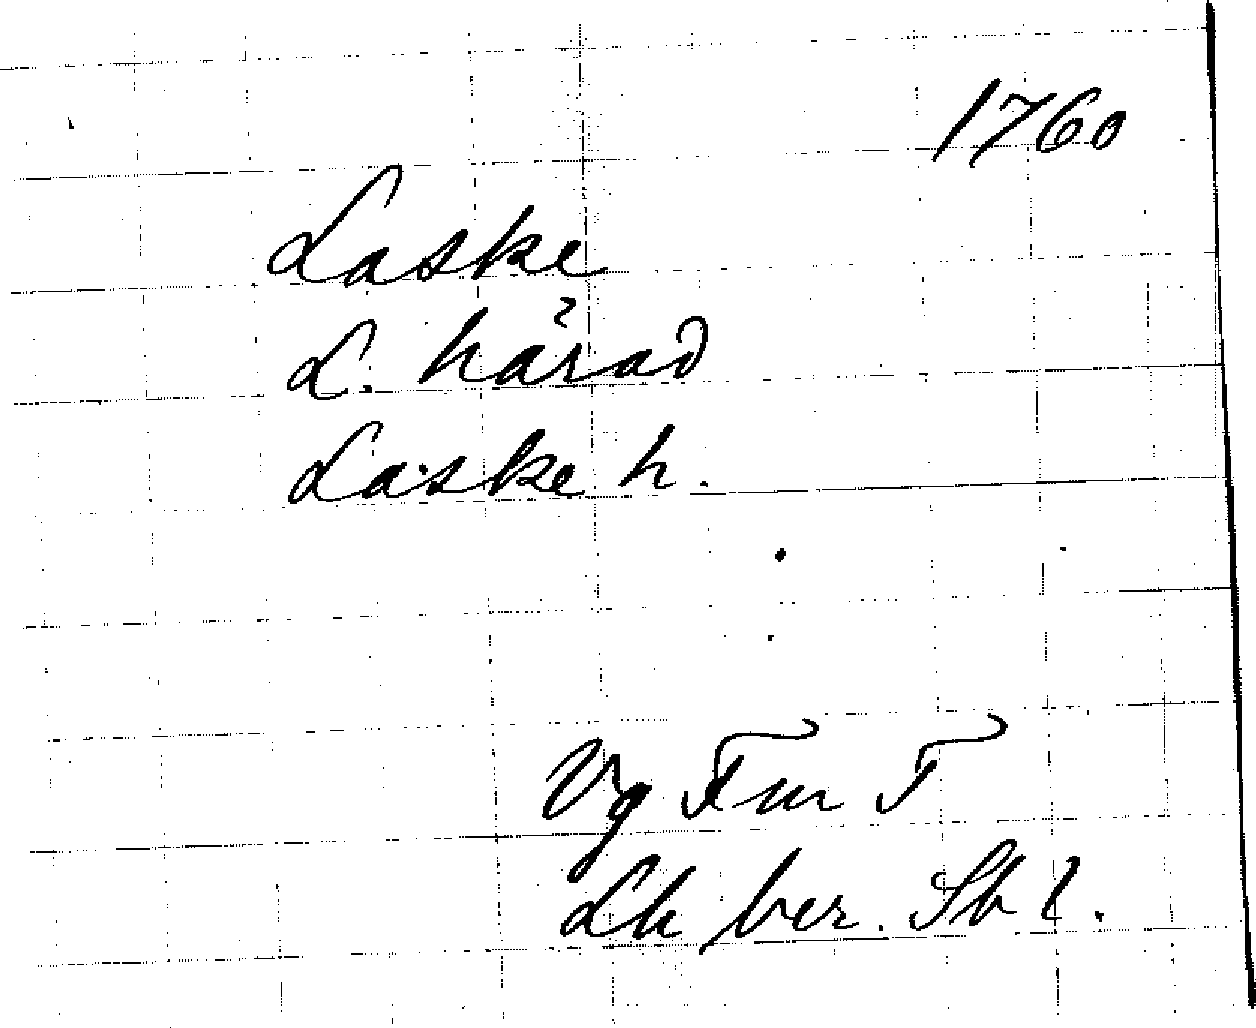 1760
Laske
L. härad
Laske h.
Vg Fm F
Lk ber. Sk l.